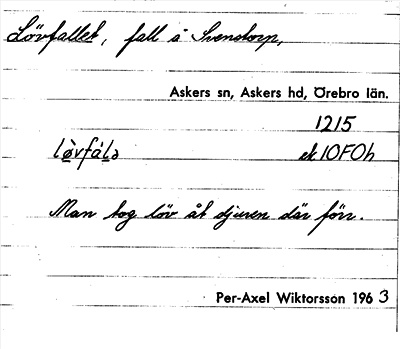 Lövfallet, fall å Svenstorp,
Askers sn, Askers hd, Örebro län.
1215
lò̱vfáḻə ek 10F0h
Man tog löv åt djuren där förr.
Per-Axel Wiktorsson 1963